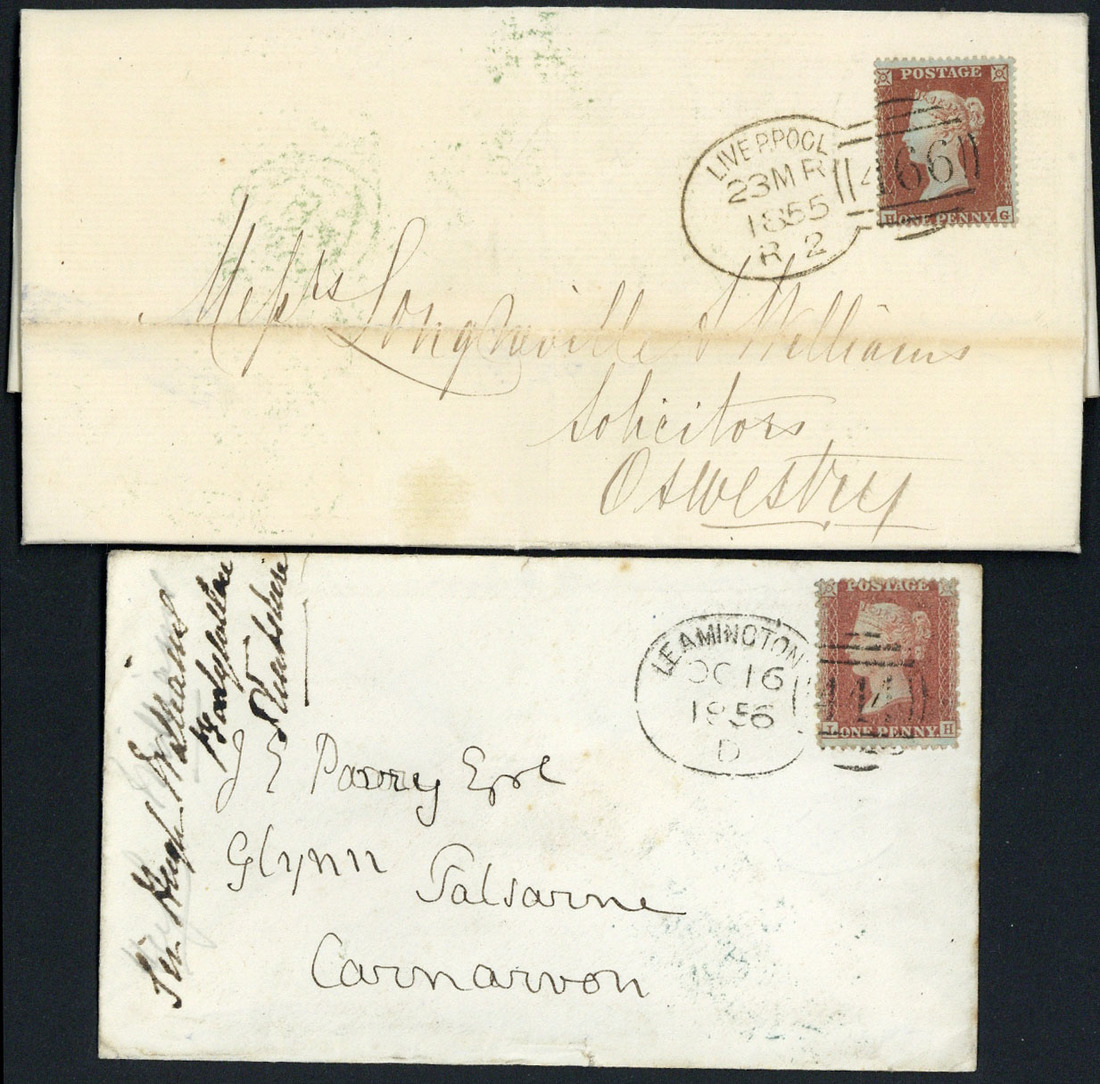 POSTAGE
LIVERPOOL
23 MR
1855
R 2
466
ONE PENNY G
Messrs Longueville & Williams
Solicitors
Oswestry
POSTAGE
LEAMINGTON
OC 16
1856
D
ONE PENNY H
Sir Hugh Williams
Bodylltyn
J E Parry Esqre
Glynn Talsarne
Carnarvon